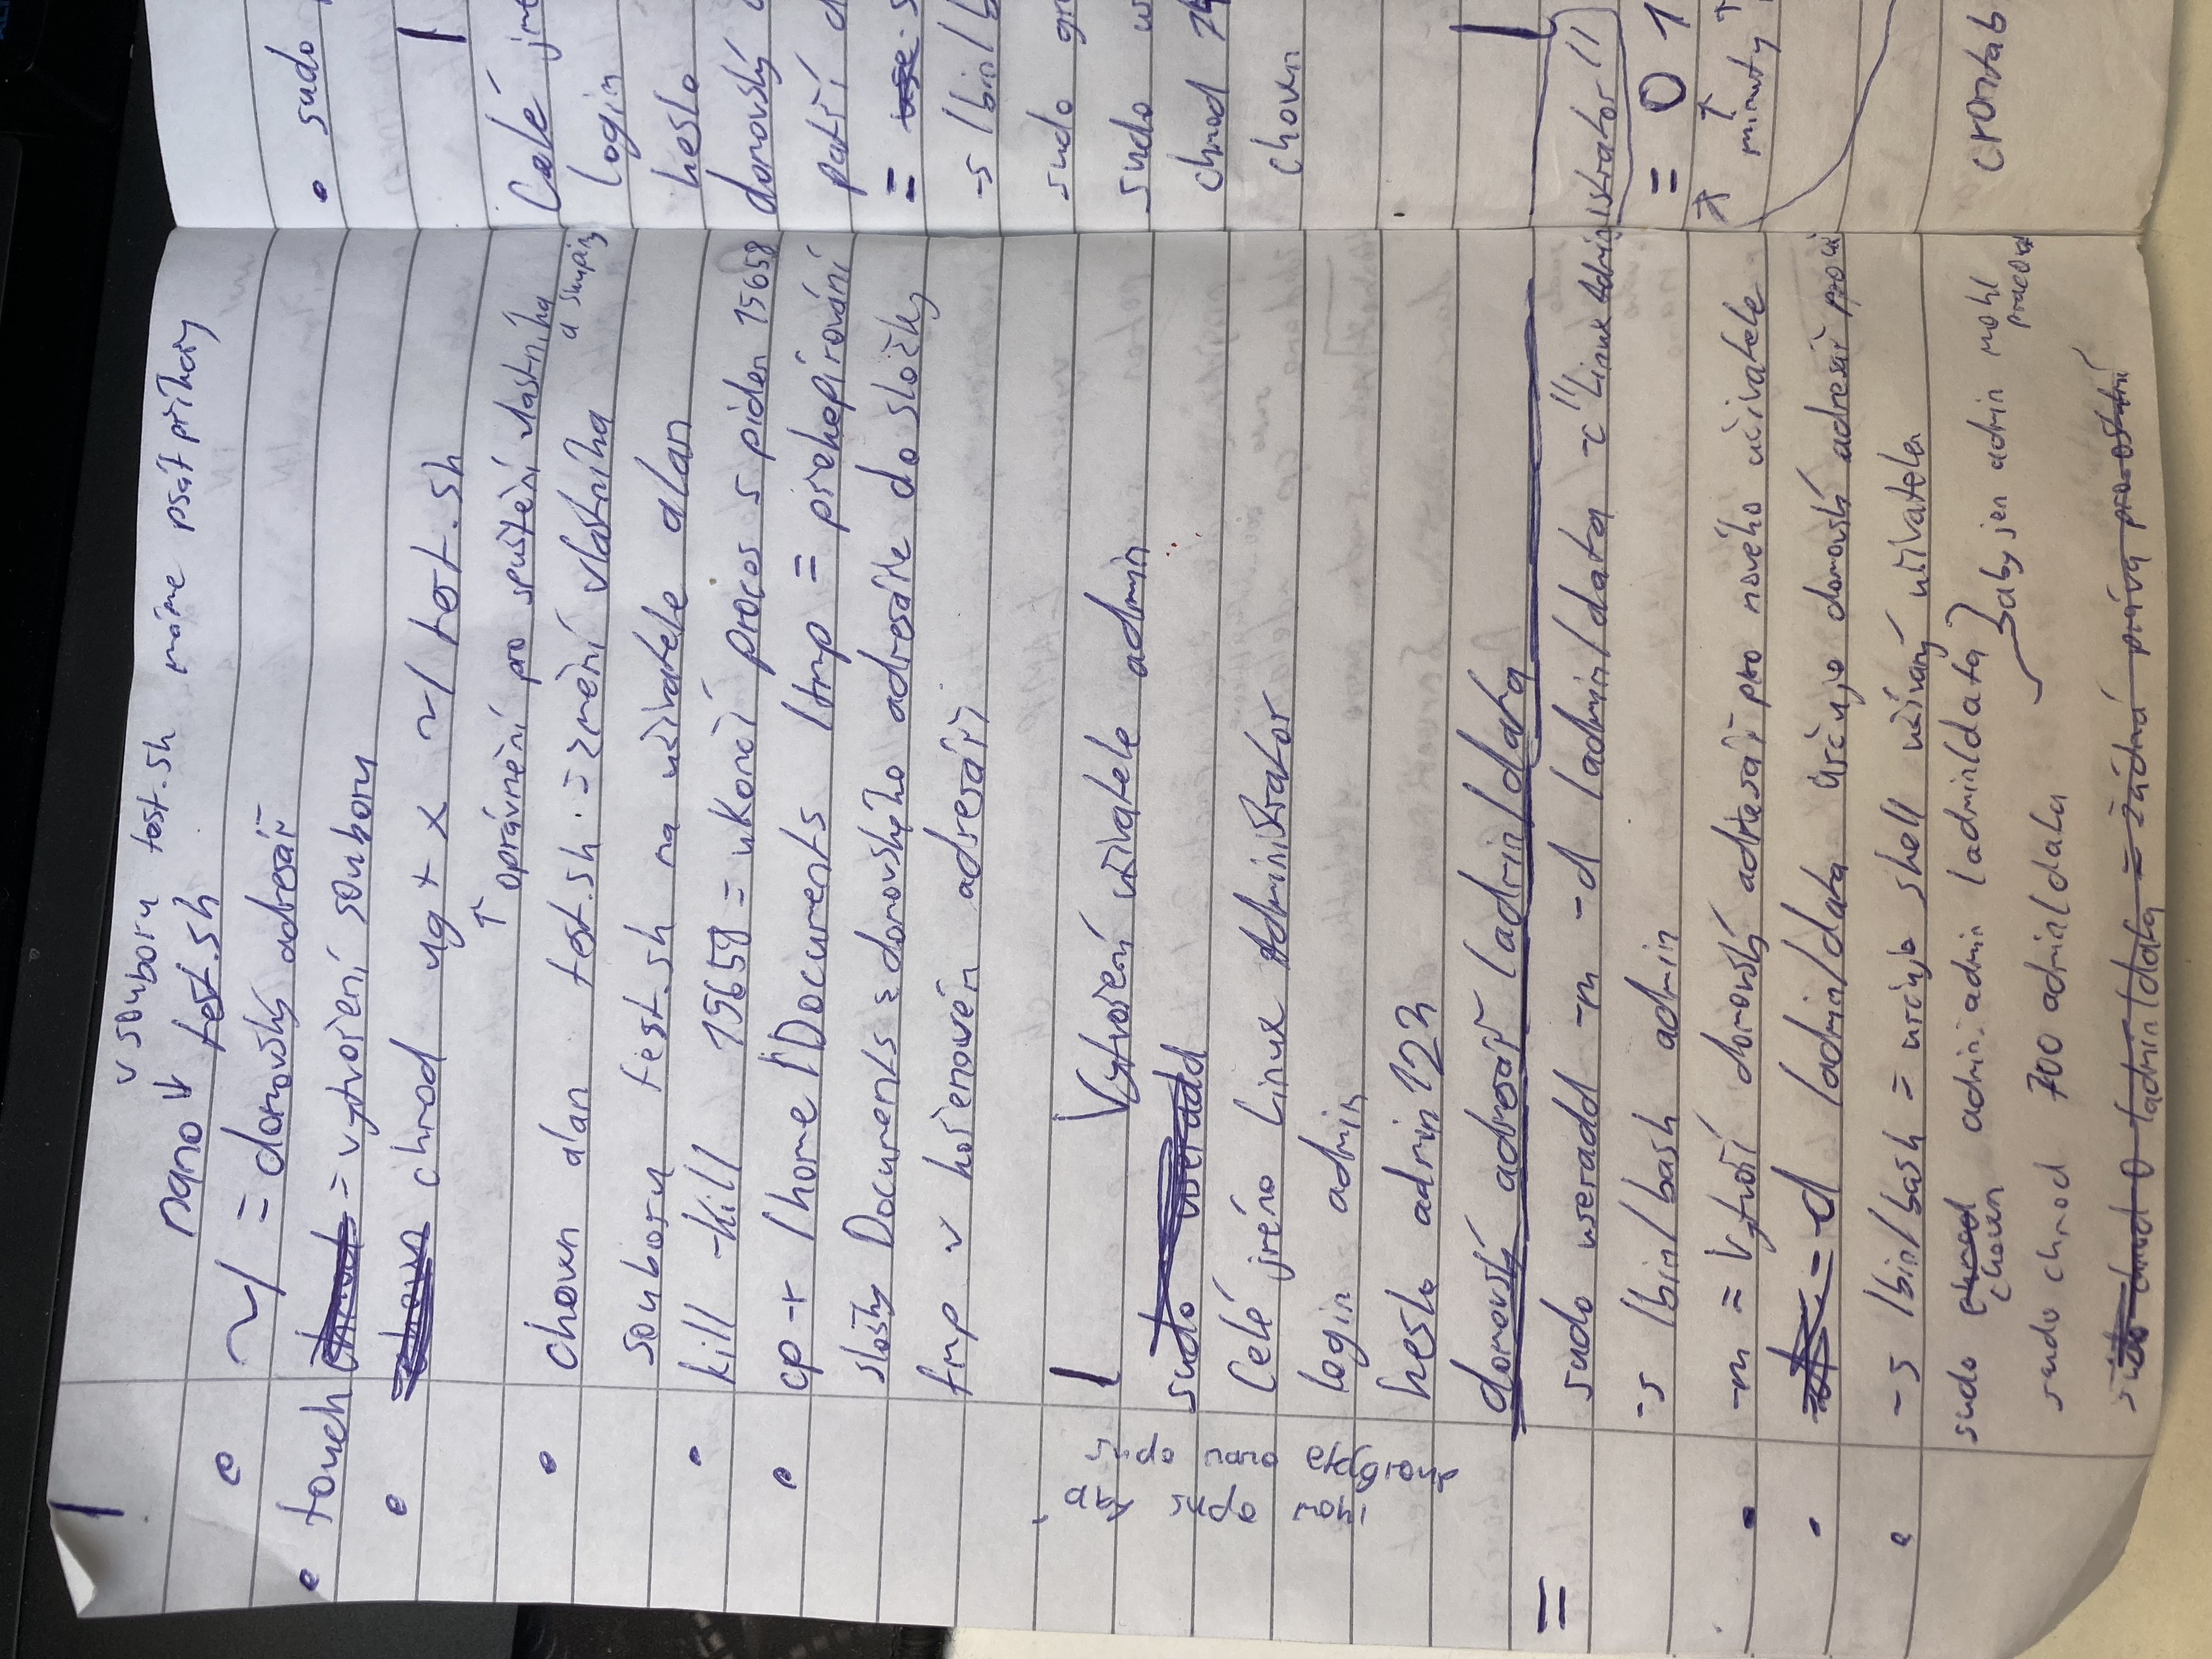 v souboru test.sh máme psát příkazy
nano ↓ test.sh
• ~/ = domovský adresář
• touch chmod = vytvoření souboru
• chown chmod ug+x ~/test.sh
↑ oprávnění pro spuštění vlastníka
a skupiny
• chown alan test.sh = změní vlastníka
souboru test.sh na uživatele alan
• kill -kill 15658 = ukončí proces s pidem 15658
• cp -r /home/Documents /tmp = překopírování
složky Documents z domovského adresáře do složky
tmp v kořenovém adresáři
Vytvoření uživatele admin
sudo useradd
Celé jméno Linux Administrator
login admin
heslo admin123
domovský adresář /admin/data
= sudo useradd -m -d /admin/data -c "Linux Administrator"
-s /bin/bash admin
• -m = Vytvoří domovský adresář pro nového uživatele
• -d /admin/data určuje domovský adresář pro
• -s /bin/bash = určuje shell užívaný uživatelem
sudo chmod admin:admin /admin/data
chown
} aby jen admin mohl
pracovat
sudo chmod 700 admin/data
sudo chmod 0 /admin/data = žádná práva pro ostatní
sudo nano etc/group
- aby sudo mohl
• sudo
Celé
login
heslo
domovský
patří
= use
-s /bin/b
sudo
sudo
chmod
chown
= 0 1
↑ ↑ ↑
minuty
crontab